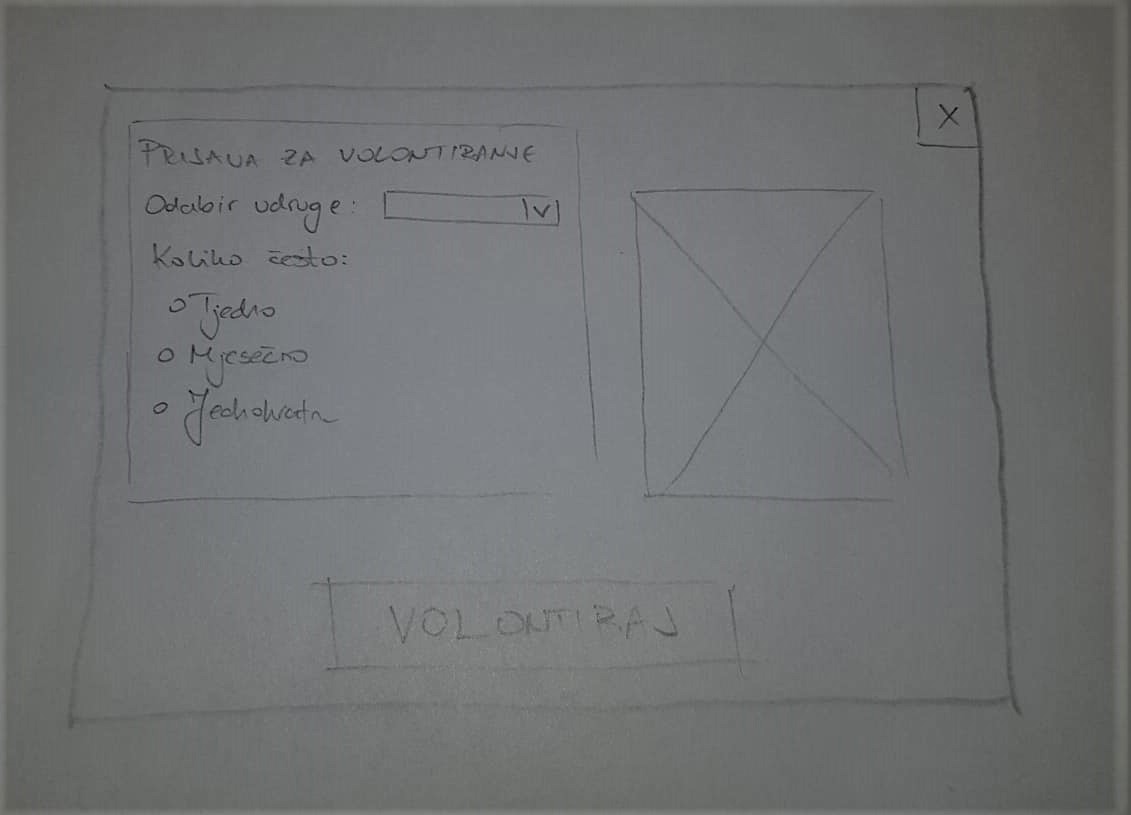 X
PRIJAVA ZA VOLONTIRANJE
Odabir udruge:
Koliko često:
Tjedno
Mjesečno
Jednokratno
VOLONTIRAJ